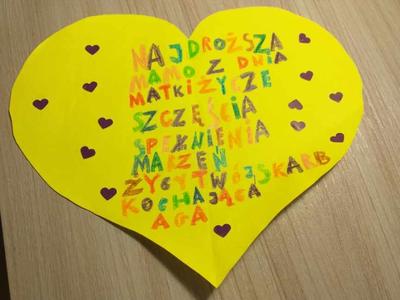 NAJDROŻSZA
MAMO Z DNIA
MATKI ŻYCZE
SZCZĘŚCIA
SPEŁNIENIA
MARZEŃ
ŻYCZY TWÓJ SKARB
KOCHAJĄCA
AGA